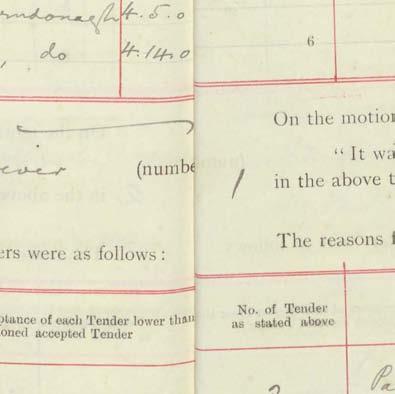 4.5.0
, do 4.14.0
(numbe
ers were as follows:
ptance of each Tender lower than
oned accepted Tender
6
On the motion
"It wa
in the above t
The reasons f
No. of Tender
as stated above
Pa